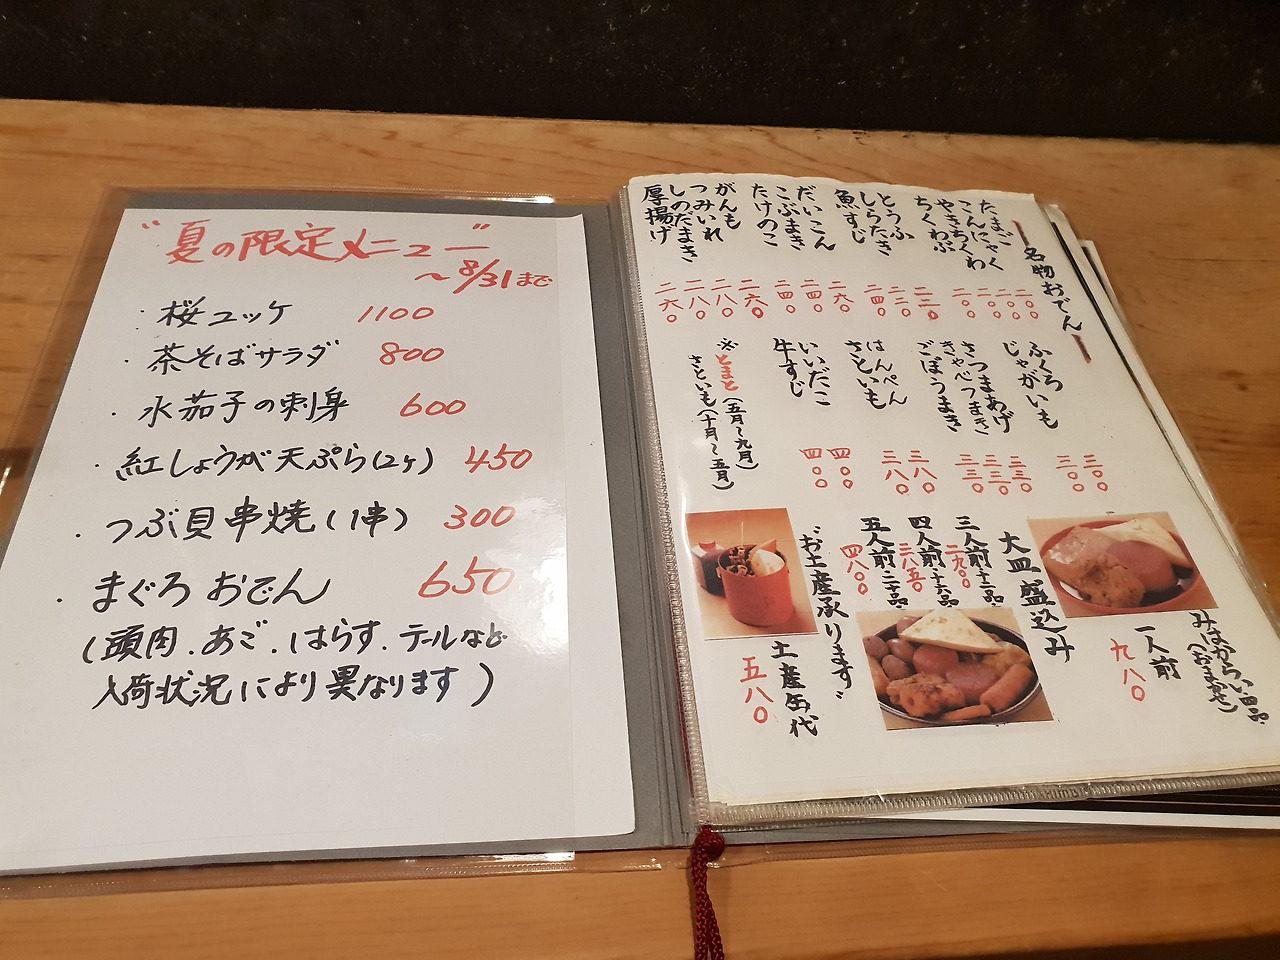 "夏の限定メニュー"
～8/31まで
・桜ユッケ 1100
・茶そばサラダ 800
・水茄子の刺身 600
・紅しょうが天ぷら(2ヶ) 450
・つぶ貝串焼(1串) 300
・まぐろおでん 650
(頭肉.あご.はらす.テールなど
入荷状況により異なります)
名物おでん
たまご 二〇〇
こんにゃく 二〇〇
やきちくわ 二〇〇
ちくわぶ 二〇〇
とうふ 二二〇
しらたき 二二〇
魚すじ 二四〇
だいこん 二六〇
こぶまき 二四〇
たけのこ 二四〇
がんも 二六〇
つみいれ 二八〇
しのだまき 二八〇
厚揚げ 二六〇
ふくろ 三〇〇
じゃがいも 三〇〇
さつまあげ 三三〇
きゃべつまき 三三〇
ごぼうまき 三三〇
はんぺん 三八〇
さといも 三八〇
いいだこ 四〇〇
牛すじ 四〇〇
※とまと(五月～九月)
さといも(十月～五月)
みはからい四品
(おまかせ)
一人前
九八〇
大皿盛込み
三人前・十二品・
二九〇〇
四人前・十六品・
三八五〇
五人前・二十品・
四八〇〇
"お土産承ります"
土産缶代
五八〇